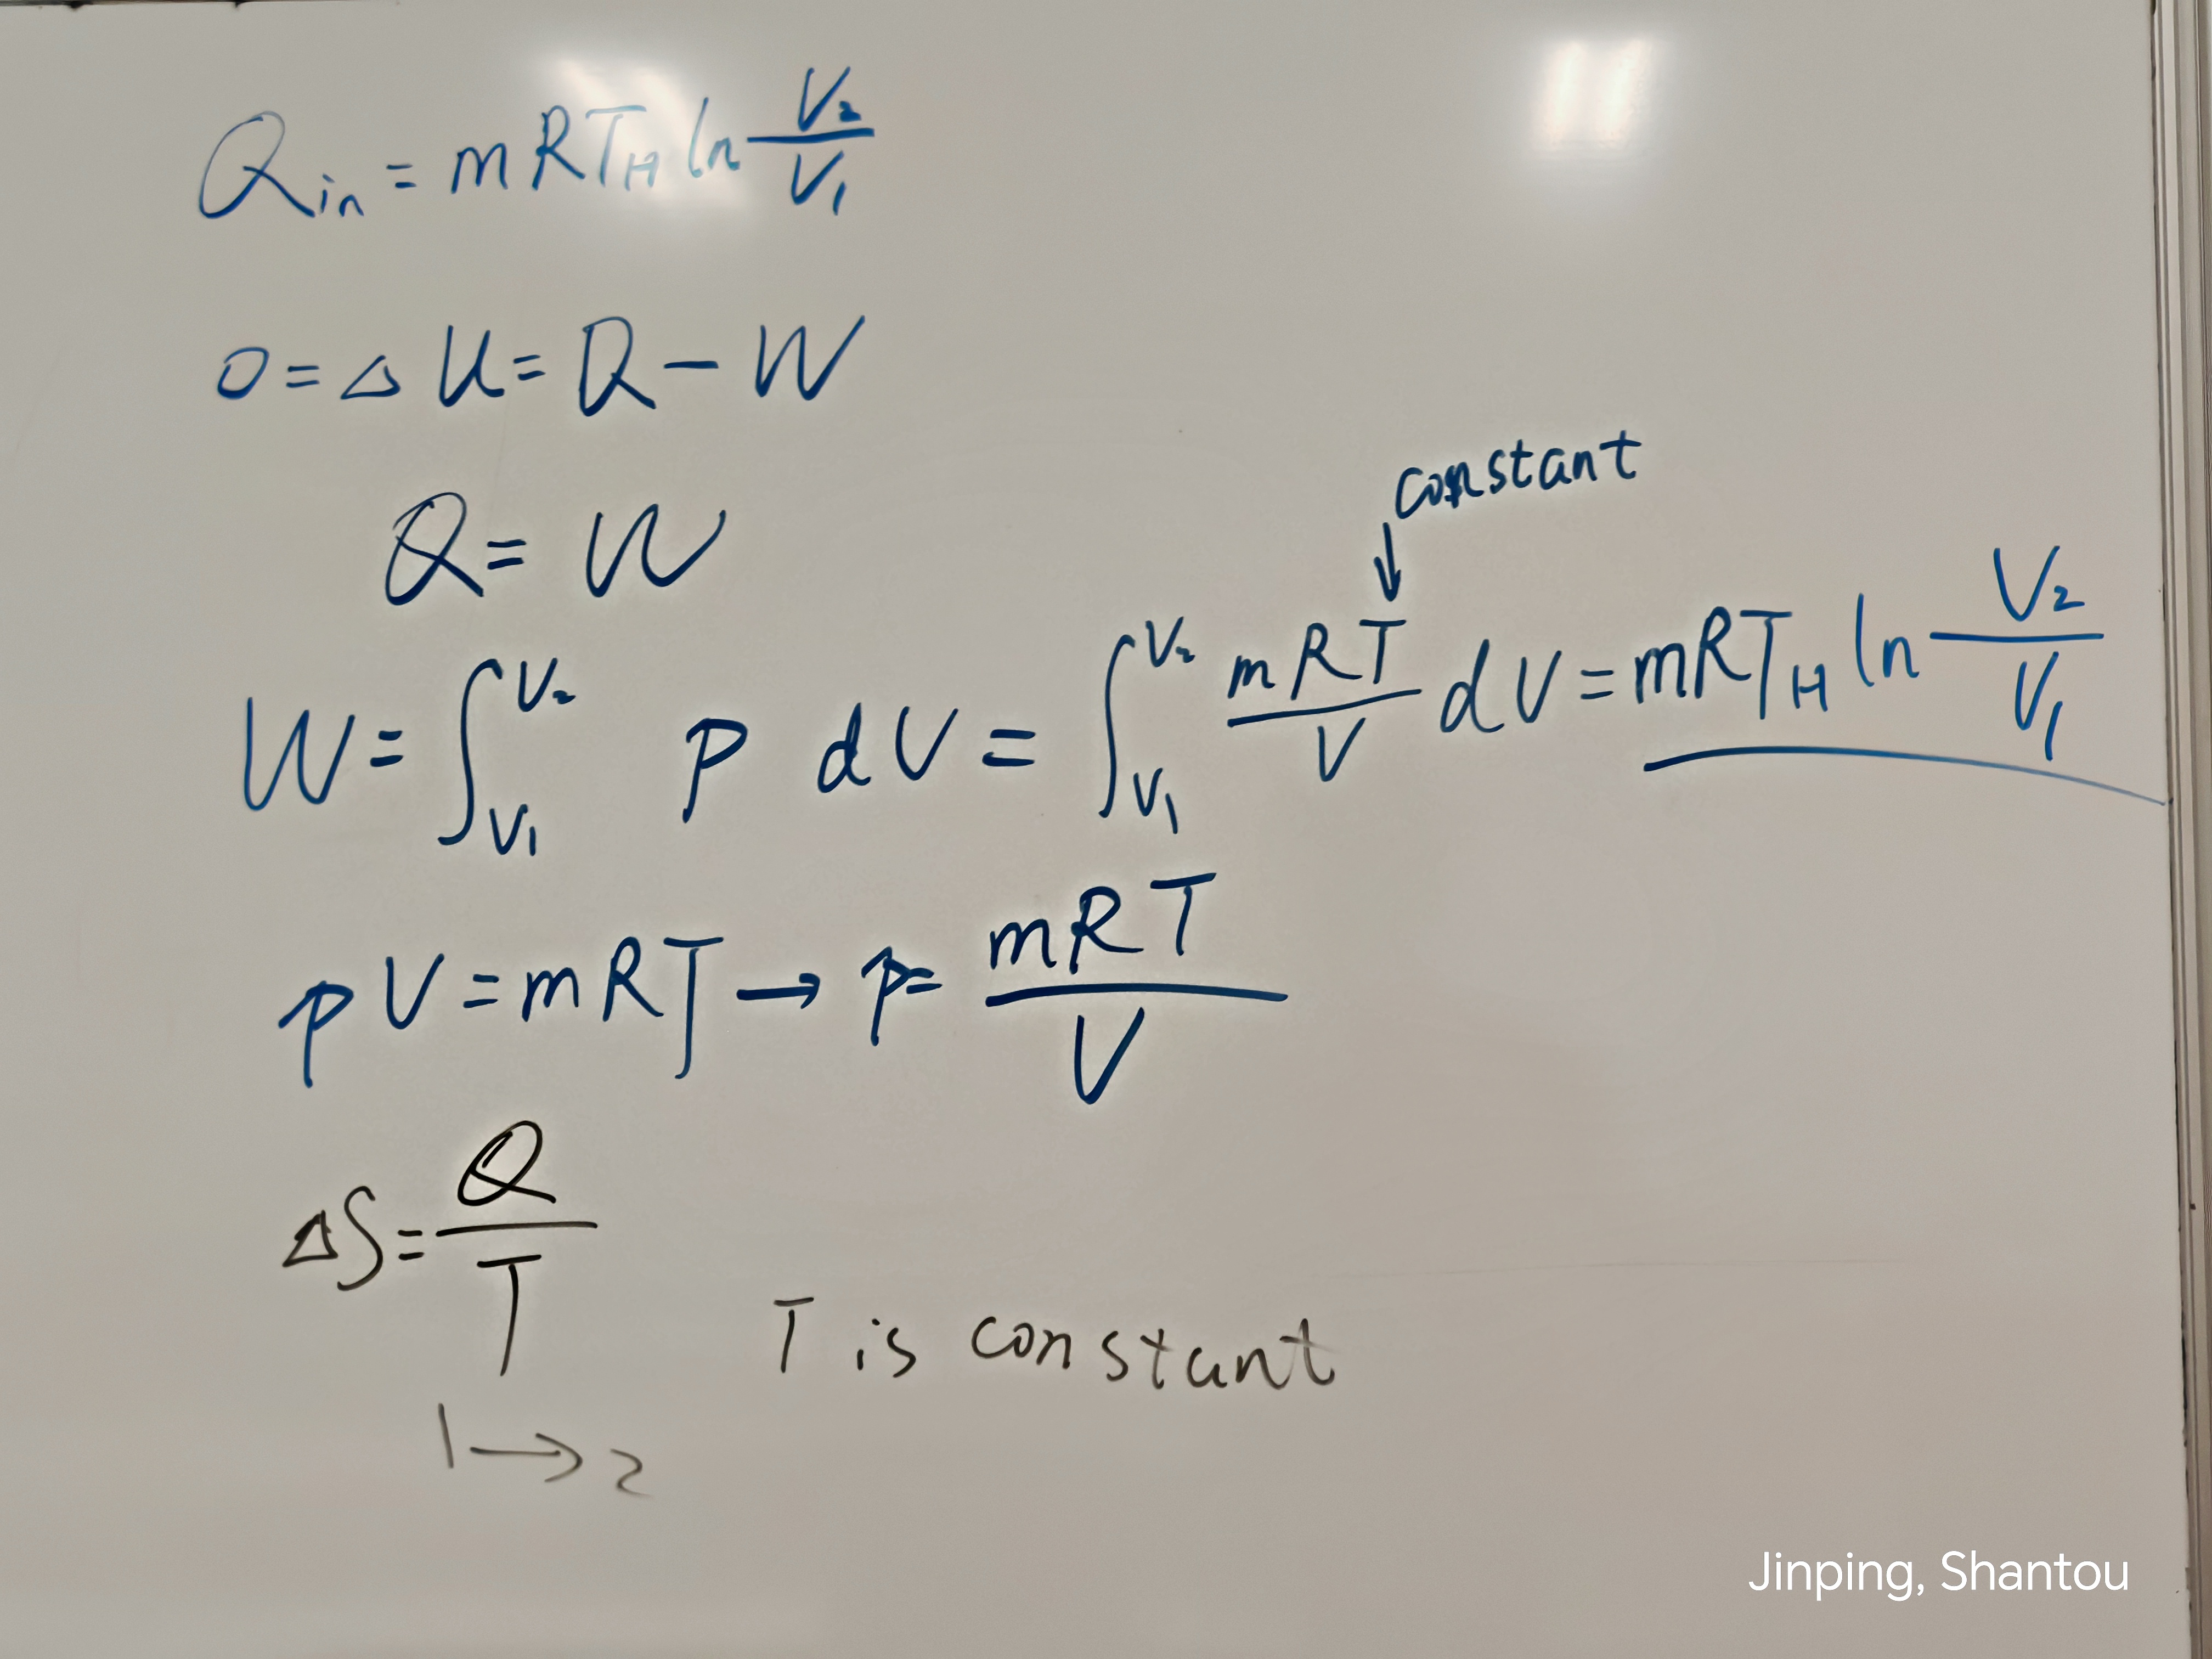 Qin = mRT_H ln V₂/V₁
0 = ΔU = Q − W
Q = W
constant
↓
W = ∫_{V₁}^{V₂} p dV = ∫_{V₁}^{V₂} mRT/V dV = mRT_H ln V₂/V₁
pV = mRT → p = mRT/V
ΔS = Q/T
T is constant
1 → 2
Jinping, Shantou